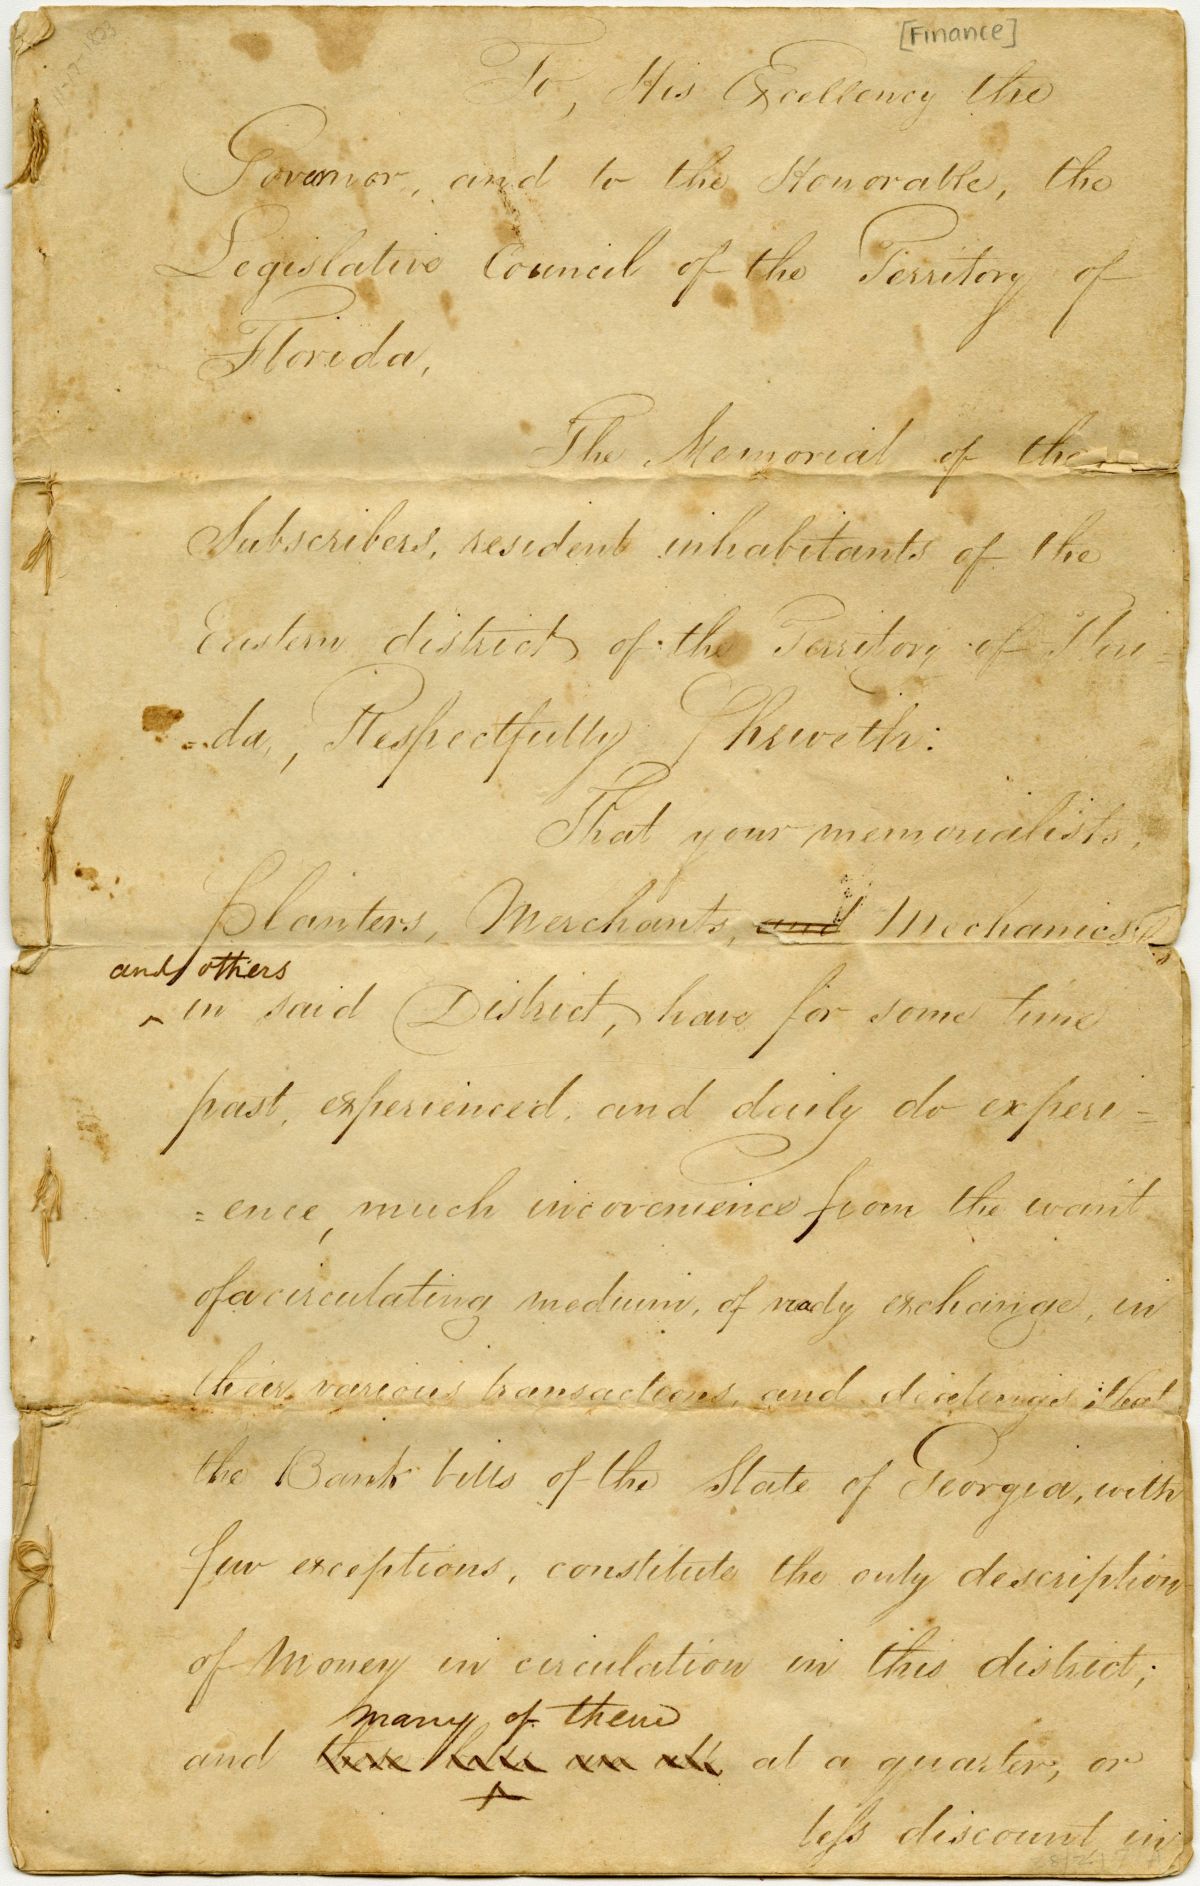 [Finance]
To, His Excellency the
Governor, and to the Honorable, the
Legislative Council of the Territory of
Florida,
The Memorial of the
Subscribers, resident inhabitants of the
Eastern district of the Territory of Flori=
=da, Respectfully Sheweth:
That your memorialists,
Planters, Merchants, and Mechanics
and others
^ in said District, have for some time
past, experienced, and daily do experi=
=ence, much inconvenience from the want
of a circulating medium, of ready exchange, in
their various transactions, and dealings; that
the Bank bills of the State of Georgia, with
few exceptions, constitute the only description
of Money in circulation in this district;
many of them
and these bills are all at a quarter, or
^
less discount in